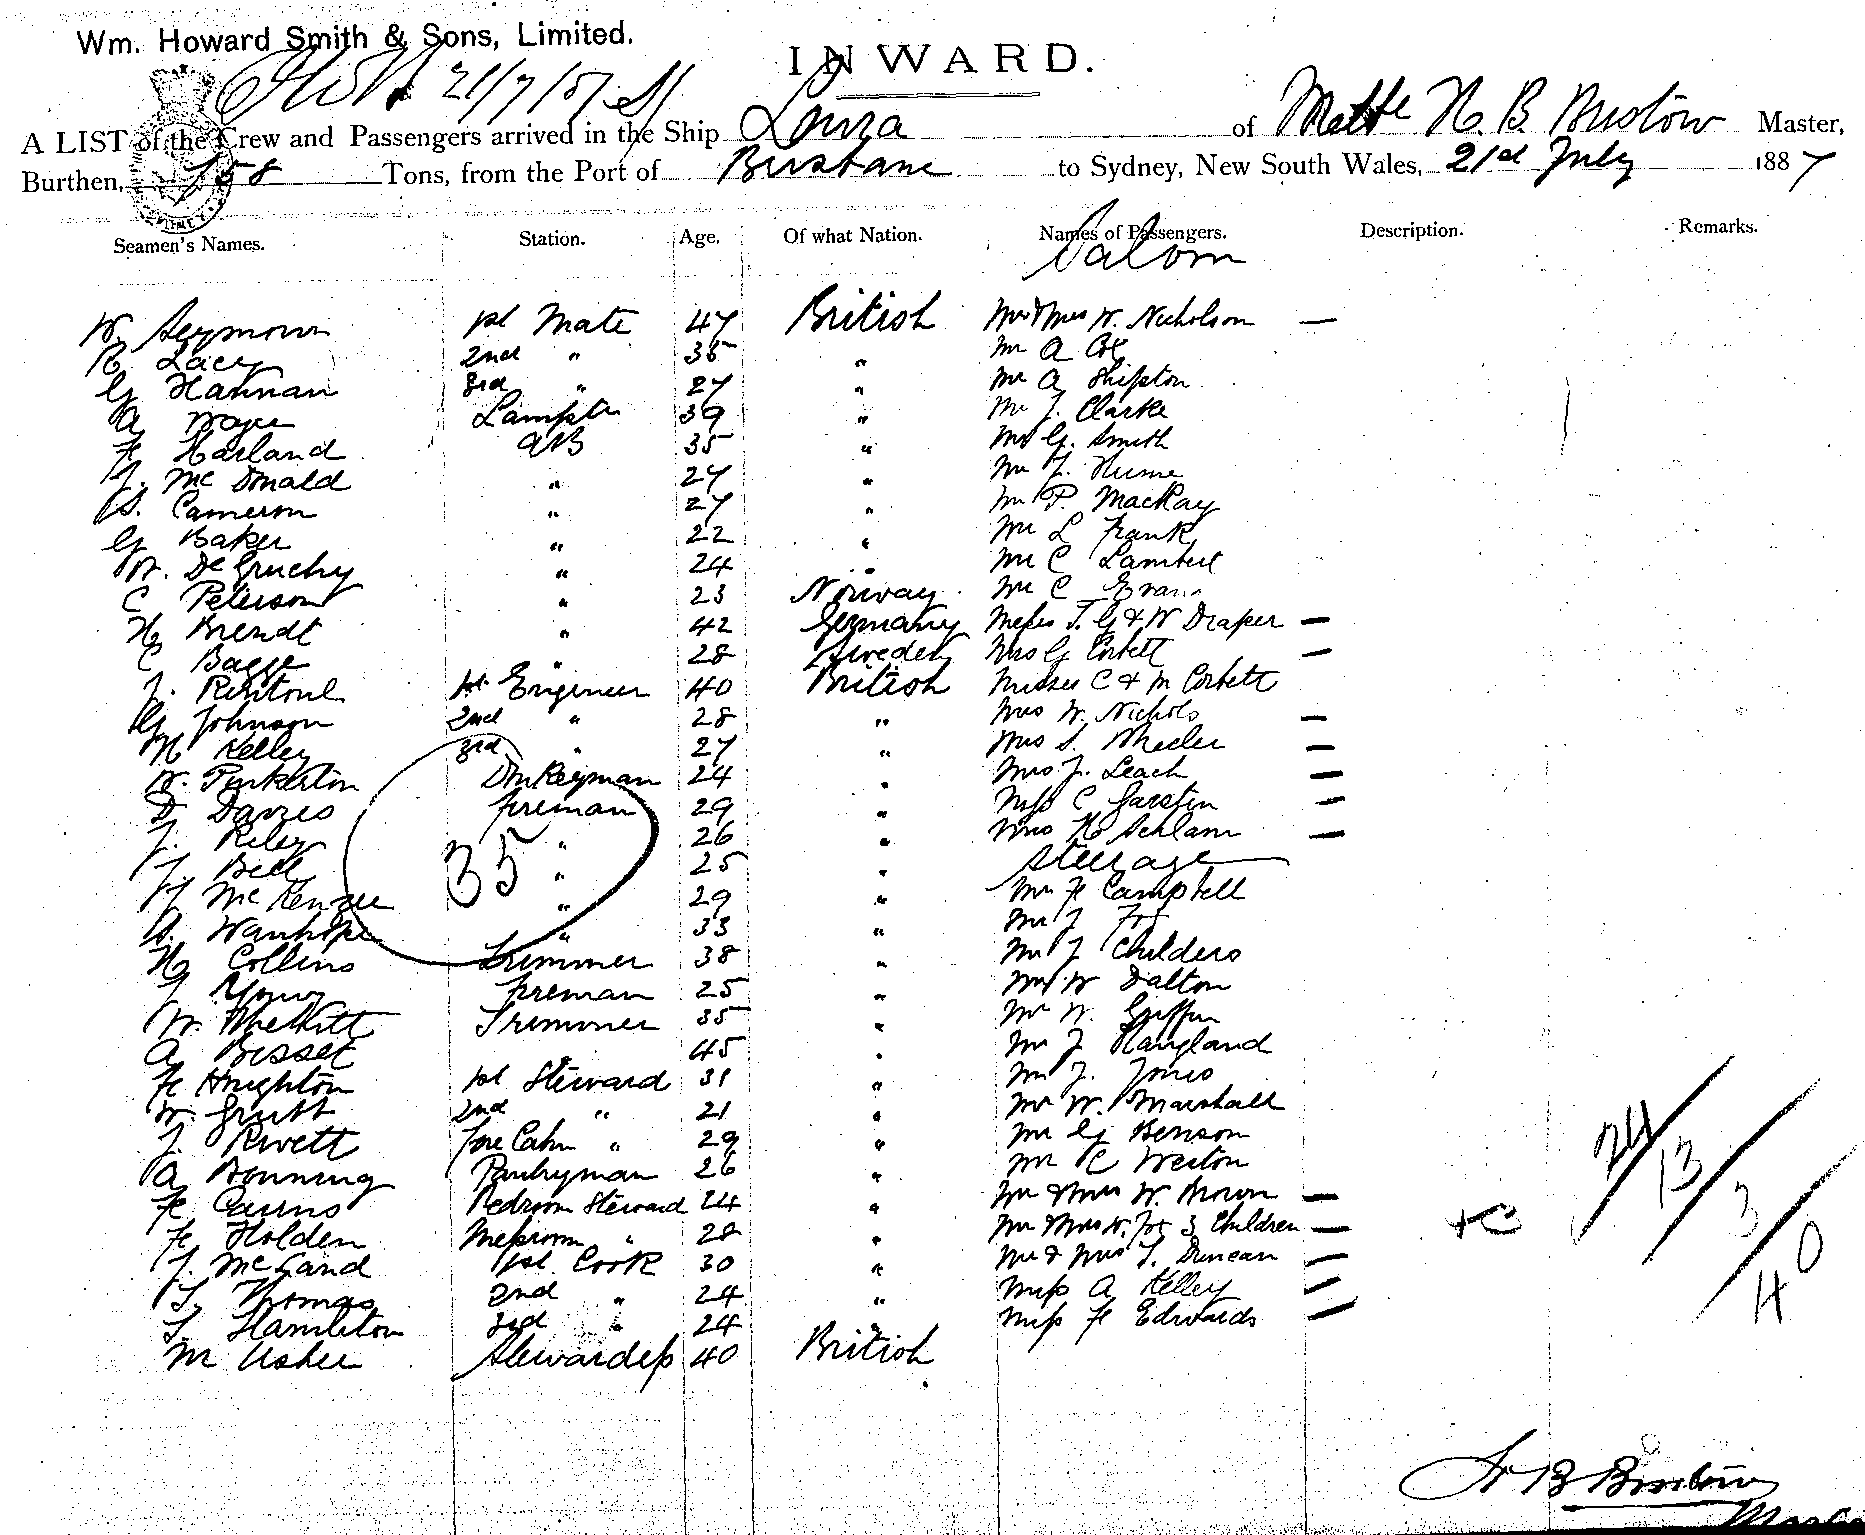 Wm. Howard Smith & Sons, Limited.
INWARD.
21/7/87
A LIST of the Crew and Passengers arrived in the Ship Louza of Melbe H. B. Bristow Master,
Burthen, 758 Tons, from the Port of Brisbane to Sydney, New South Wales, 21st July 1887
Seamen's Names. Station. Age. Of what Nation. Names of Passengers. Description. Remarks.
Saloon
W. Seymour 1st Mate 47 British Mr & Mrs W. Nicholson —
R. Lacey 2nd " 35 " Mr A Coe
G Hannan 3rd " 27 " Mr A Shipton
A Lampts 39 " Mr J. Clarke
F Harland AB 35 " Mr G. Smith
J. McDonald " 27 " Mr J. Hume
A. Cameron " 27 " Mr P. MacKay
G Baker " 22 " Mr L Frank
W. DeGruchy " 24 " Mr C Lambert
C Peterson " 23 Norway Mr C Evans
H Brendt " 42 Germany Messrs T. G & W Draper —
C Bagge " 28 Sweden Mrs G Corbett —
J. Rintoul 1st Engineer 40 British Misses C & M Corbett
G Johnson 2nd " 28 " Mrs W. Nichols —
H Kelley 3rd " 27 " Mrs S. Wheeler —
W. Pinkerton Donkeyman 24 " Mrs J. Leach —
D Davies fireman 29 " Miss C Garstin —
J. Riley " 26 " Mrs H Schlam —
J. Bell " 25 " Steerage
McKenzie " 29 " Mr F Campbell
A. Wanhope " 33 " Mr J Fry
H Collins Trimmer 38 " Mr J Childers
J Young fireman 25 " Mr W Dalton
W. Trimmer 35 " Mr W. Griffin
A Bisset 45 " Mr J Hangland
F Houghton 1st Steward 31 " Mr J. Jones
W. 2nd " 21 " Mr W. Marshall
J. Rivett Fore Cabin " 29 " Mr G Benson
A Donning Pantryman 26 " Mr C Weston
F Cairns Bedroom Steward 24 " Mr & Mrs W. Brown —
F Holden Messroom " 28 " Mr Mrs W. 3 Children —
J. McCand 1st Cook 30 " Mr & Mrs T. Duncan —
T. Thomas 2nd " 24 " Miss A Kelley —
T. Hamilton 3rd " 24 " Miss F Edwards —
M Usher Stewardess 40 British
35
24/13/3/40
H B Bristow
Master